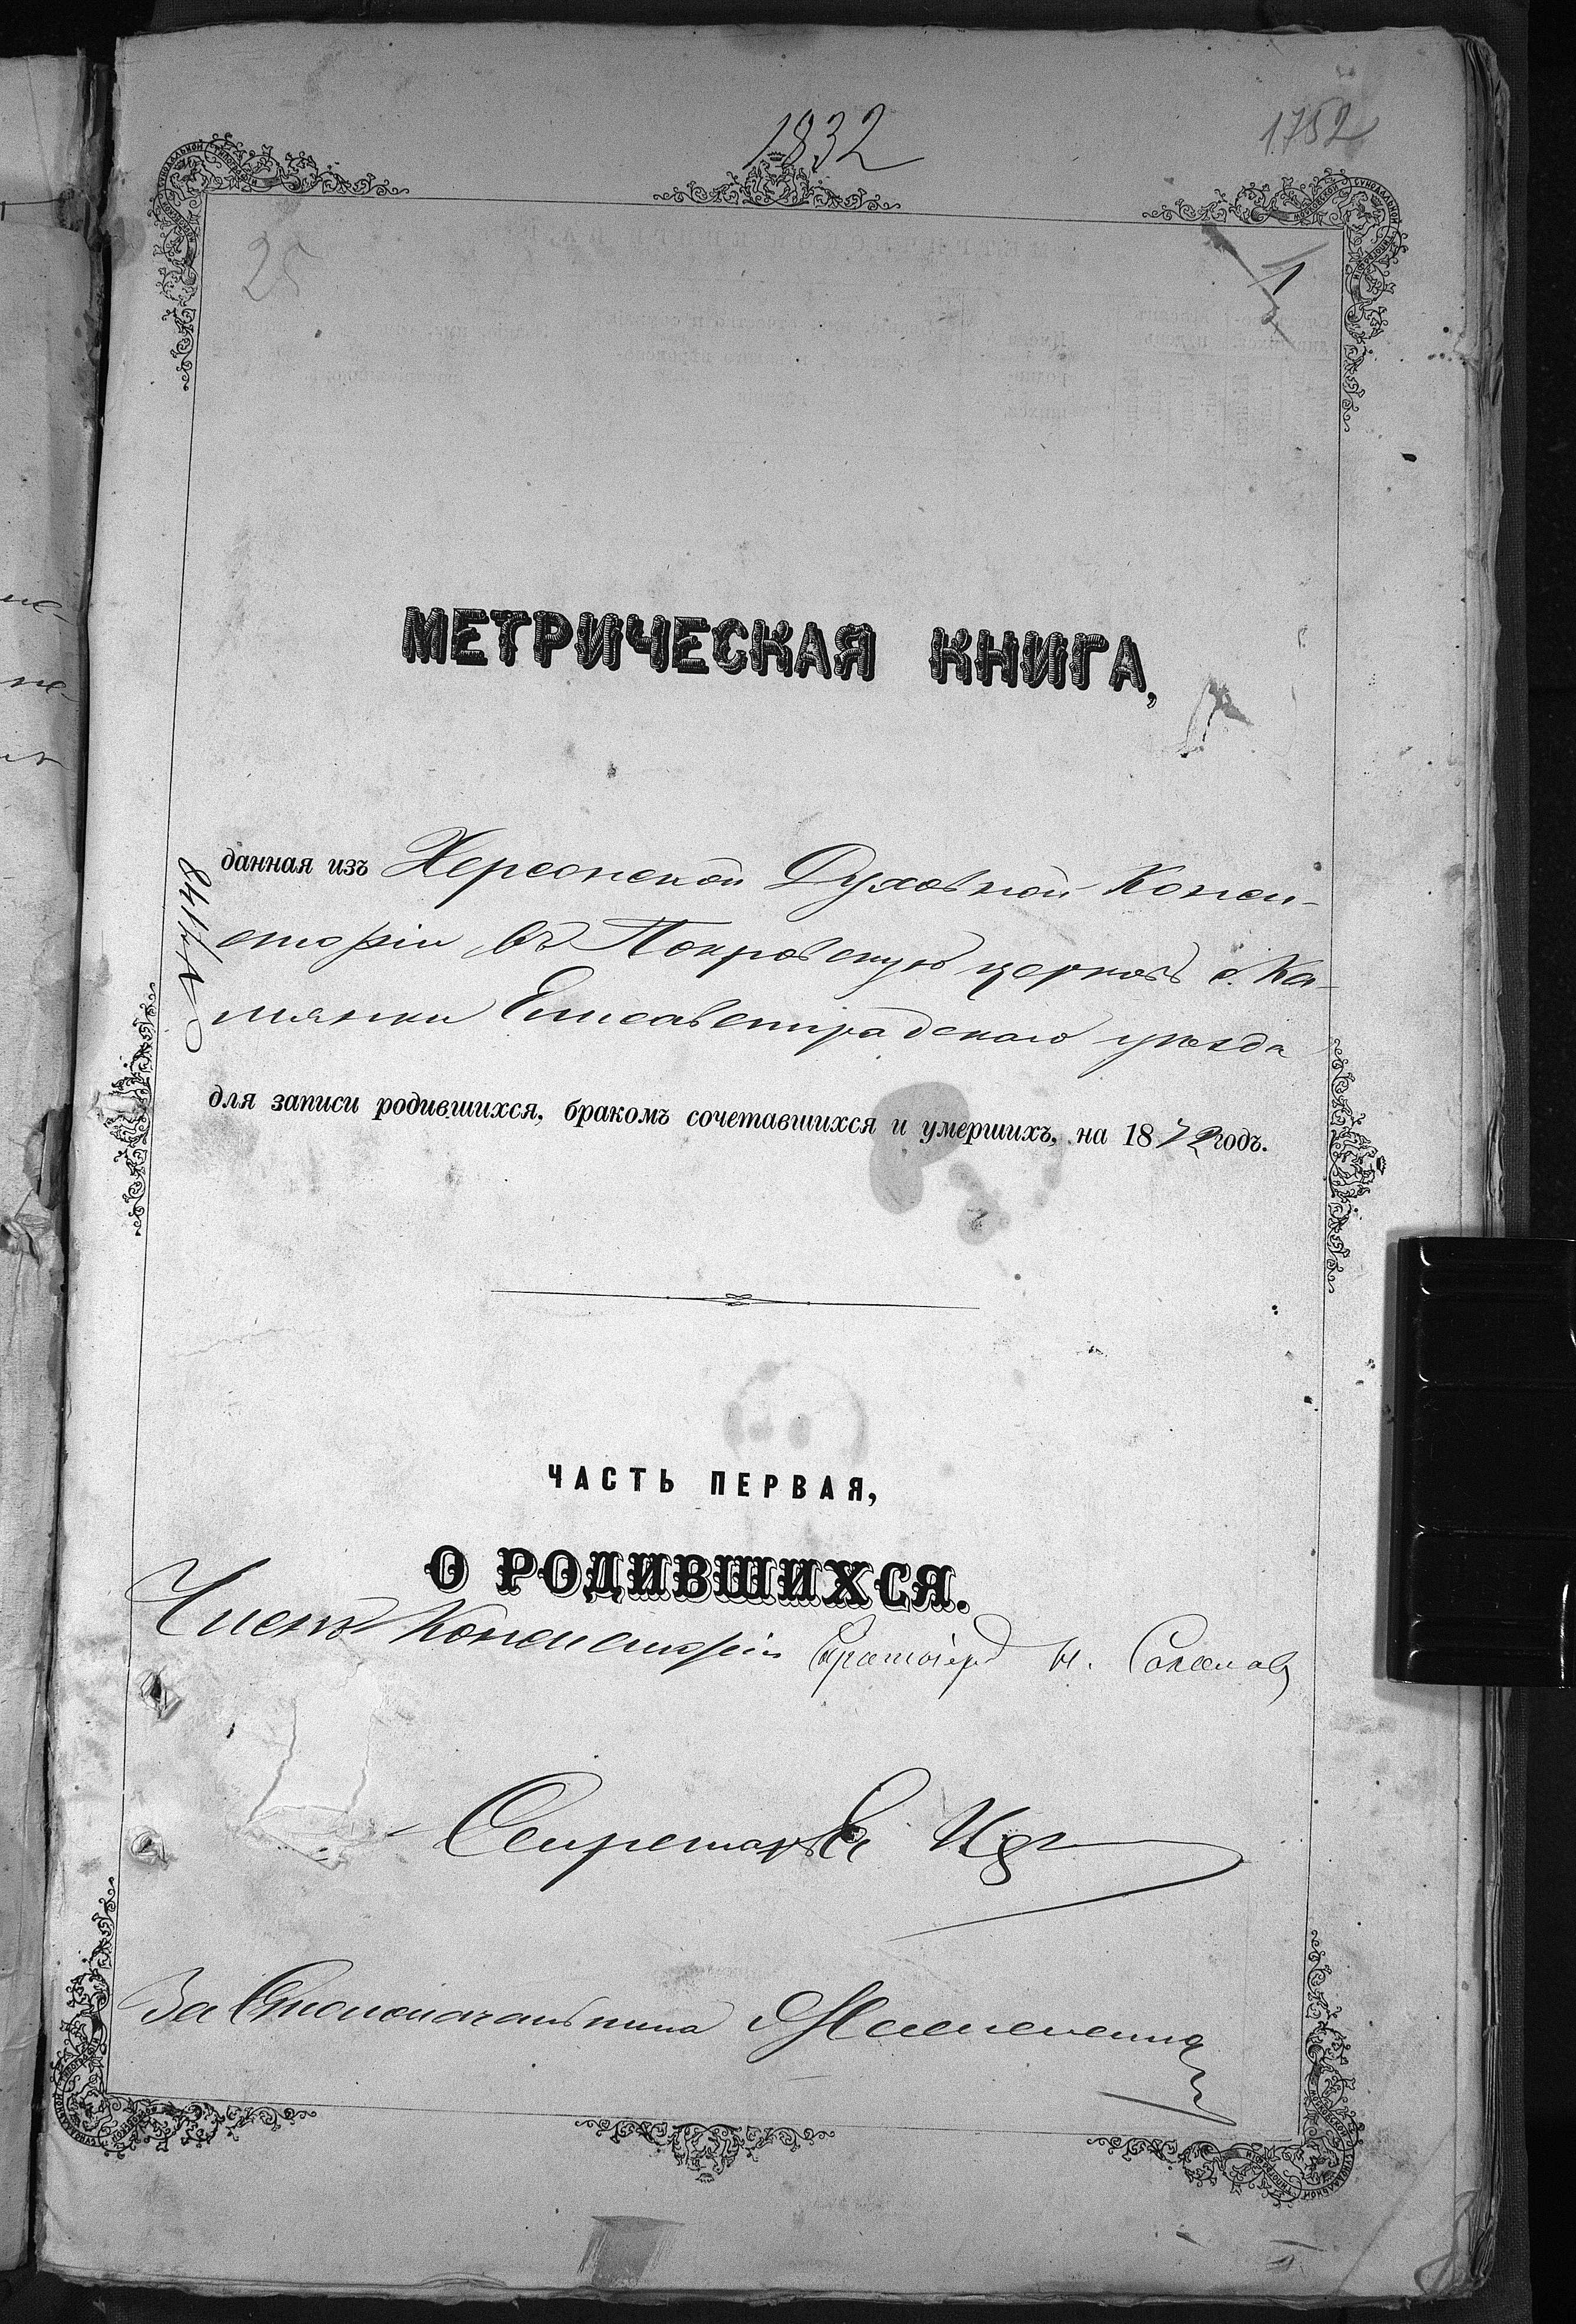 1832
1752
25
1
МЕТРИЧЕСКАЯ КНИГА,
№ 1148
данная изъ Херсонской Духовной Конси-
сторіи въ Покровскую церковь с. Ка-
мянки Елисаветградскаго уѣзда
для записи родившихся, бракомъ сочетавшихся и умершихъ, на 1872 годъ.
ЧАСТЬ ПЕРВАЯ,
О РОДИВШИХСЯ.
Членъ Консисторіи Протоіерей Н. Соколовъ
Секретарь
За Столоначальника